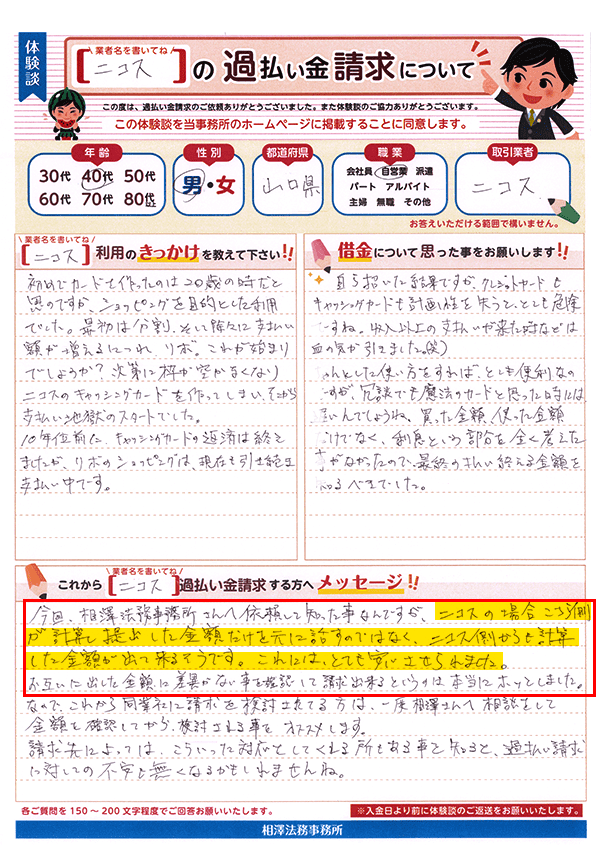 体験談
業者名を書いてね
[ニコス]の過払い金請求について
この度は、過払い金請求のご依頼ありがとうございました。また体験談のご協力ありがとうございます。
この体験談を当事務所のホームページに掲載することに同意します。
年齢
30代 40代 50代
60代 70代 80代以上
性別
男・女
都道府県
山口県
職業
会社員 自営業 派遣
パート アルバイト
主婦 無職 その他
取引業者
ニコス
お答えいただける範囲で構いません。
業者名を書いてね
[ニコス]利用のきっかけを教えて下さい!!
初めてカードを作ったのは20歳の時だと
思のですが、ショッピングを目的とした利用
でした。最初は分割、そして徐々に支払い
額が増えるにつれ、リボ。これが始まり
でしょうか?次第に枠が空かなくなり
ニコスのキャッシングカードを作ってしまい、そこから
支払い地獄のスタートでした。
10年位前に、キャッシングカードの返済は終え
ましたが、リボのショッピングは、現在も引き続き
支払い中です。
借金について思った事をお願いします!!
自ら招いた結果ですが、クレジットカードも
キャッシングカードも計画性を失うと、とても危険
ですね。収入以上の支払いが来た時などは
血の気が引きました。(笑)
んとした使い方をすれば、とても便利なの
すが、冗談でも魔法のカードと思った時には
いんでしょうね、買った金額、使った金額
けでなく、利息という部分を全く考えた
がなかったので、最終の払い終える金額を
知るべきでした。
業者名を書いてね
これから[ニコス]過払い金請求する方へメッセージ!!
今回、相澤法務事務所さんへ依頼して知った事なんですが、ニコスの場合こちら側
が計算し提出した金額だけを元に話すのではなく、ニコス側からも計算
した金額が出て来るそうです。これには、とても安心させられました。
お互いに出した金額に差異がない事を確認して請求出来るというのは本当にホッとしました。
なので、これから同業社に請求を検討されてる方は、一度相澤さんへ相談をして
金額を確認してから、検討される事をオススメします。
請求先によっては、こういった対応をしてくれる所もある事を知ると、過払い請求
に対しての不安も無くなるかもしれませんね。
各ご質問を150～200文字程度でご回答お願いいたします。
※入金日より前に体験談のご返送をお願いいたします。
相澤法務事務所